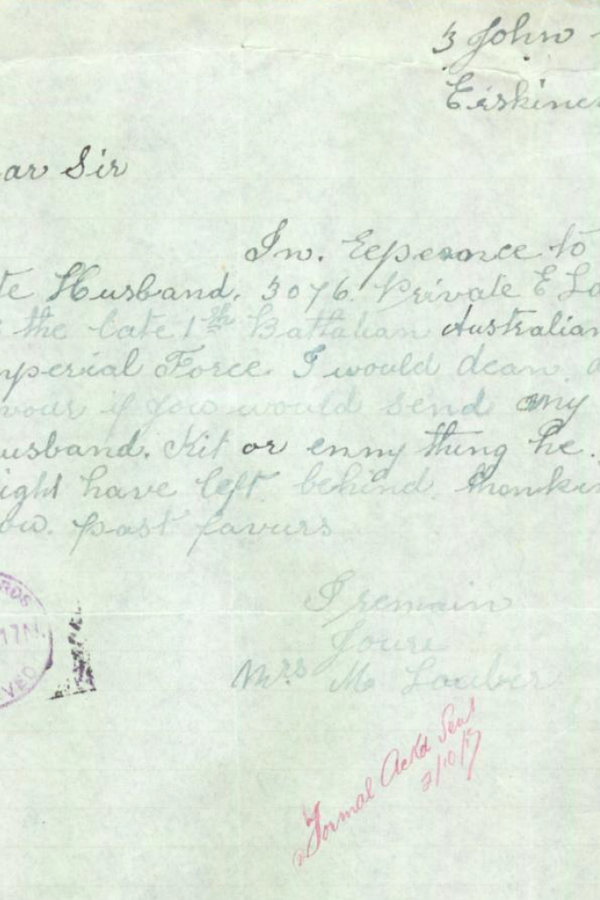 3 John
Erskine
ar Sir
In. Reperance to
te Husband. 3076. Private E Lo
the late 1th Battalian Australian
mperial Force I would deam a
vour if you would send any
usband. Kit or enny thing he.
ight have left behind. thankin
ou. past favurs
I remain
Yours
Mrs M Lauber
RDS
17N.
VED
Formal Ackd Sent
2/10/17